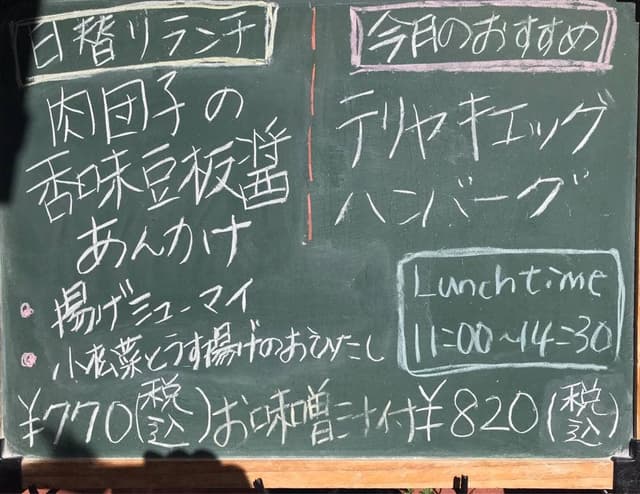 日替りランチ
肉団子の
香味豆板醤
あんかけ
・揚げシューマイ
・小松菜とうす揚げのおひたし
¥770(税込)お味噌汁付¥820(税込)
今月のおすすめ
テリヤキエッグ
ハンバーグ
Lunch time
11:00〜14:30